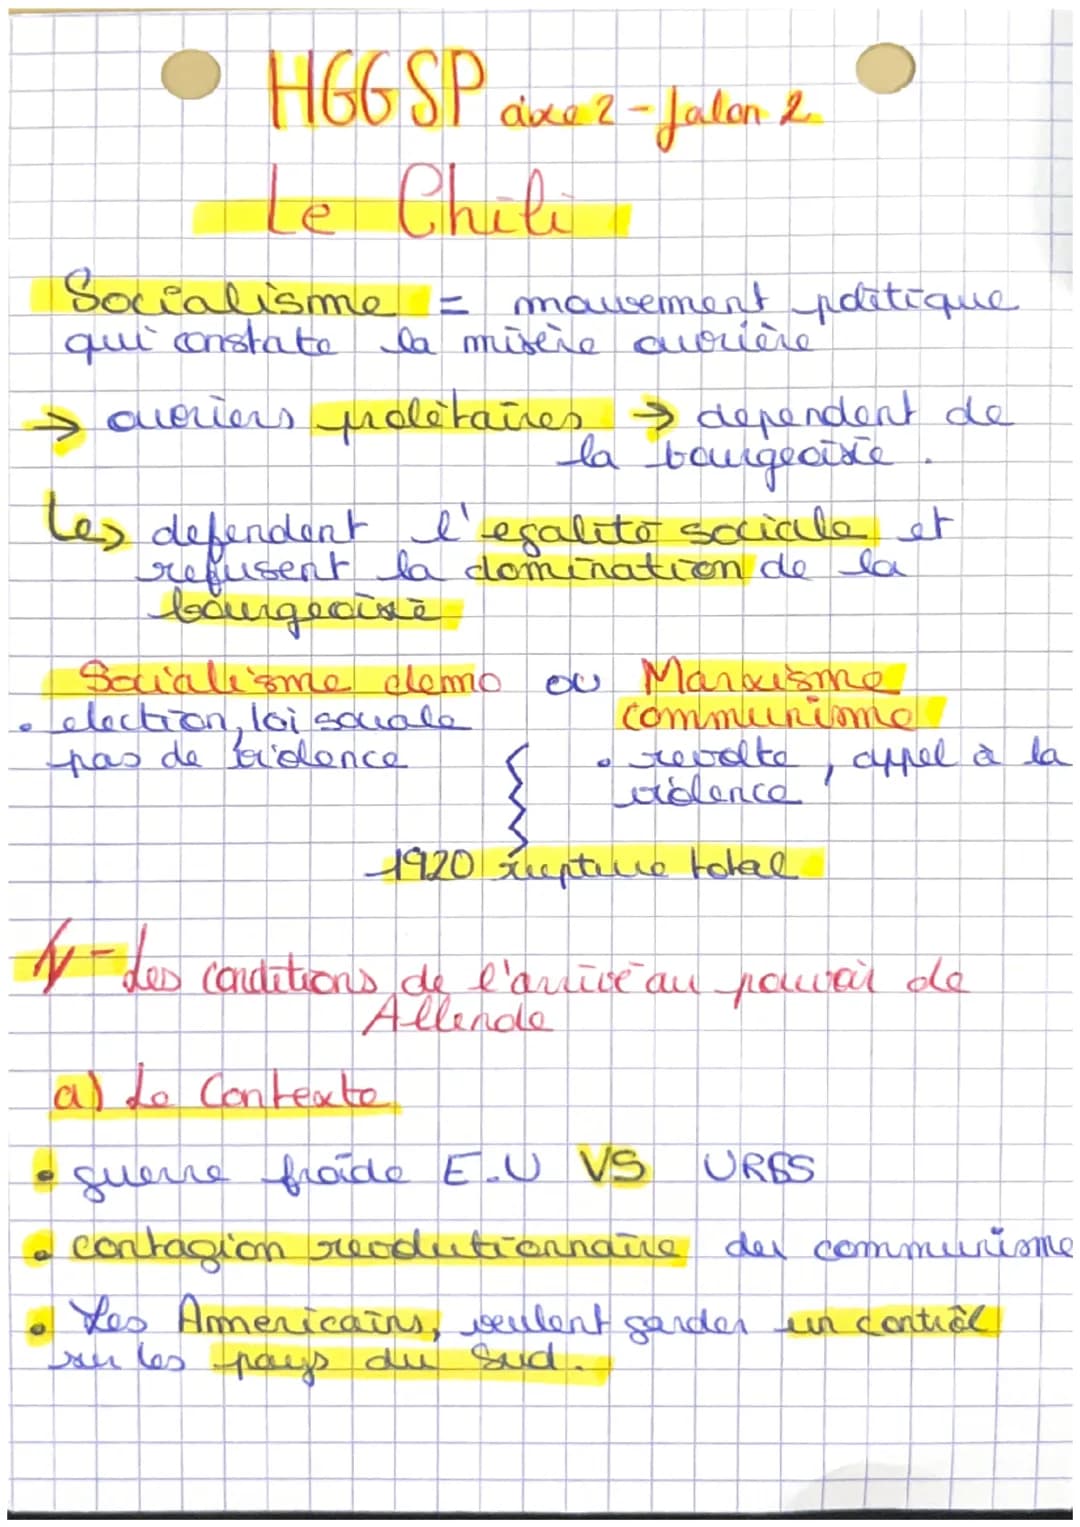 HGGSP axe 2 - Jalon 2
Le Chili
Socialisme = mouvement politique
qui constate la misère ouvrière
→ ouvriers prolétaires → dependent de
la bourgeoisie.
↳ defendent l'egalité sociale et
refusent la domination de la
bourgeoisie
Socialisme demo ou Marxisme
communisme
• election, loi sociale
pas de violence
• revolte, appel à la
violence
1920 rupture total
- Les conditions de l'arrivé au pouvoir de
Allende
a) Le Contexte
• guerre froide E.U VS URSS
• contagion revolutionnaire du communisme
• Les Americains, veulent garder un contrôl
sur les pays du Sud.